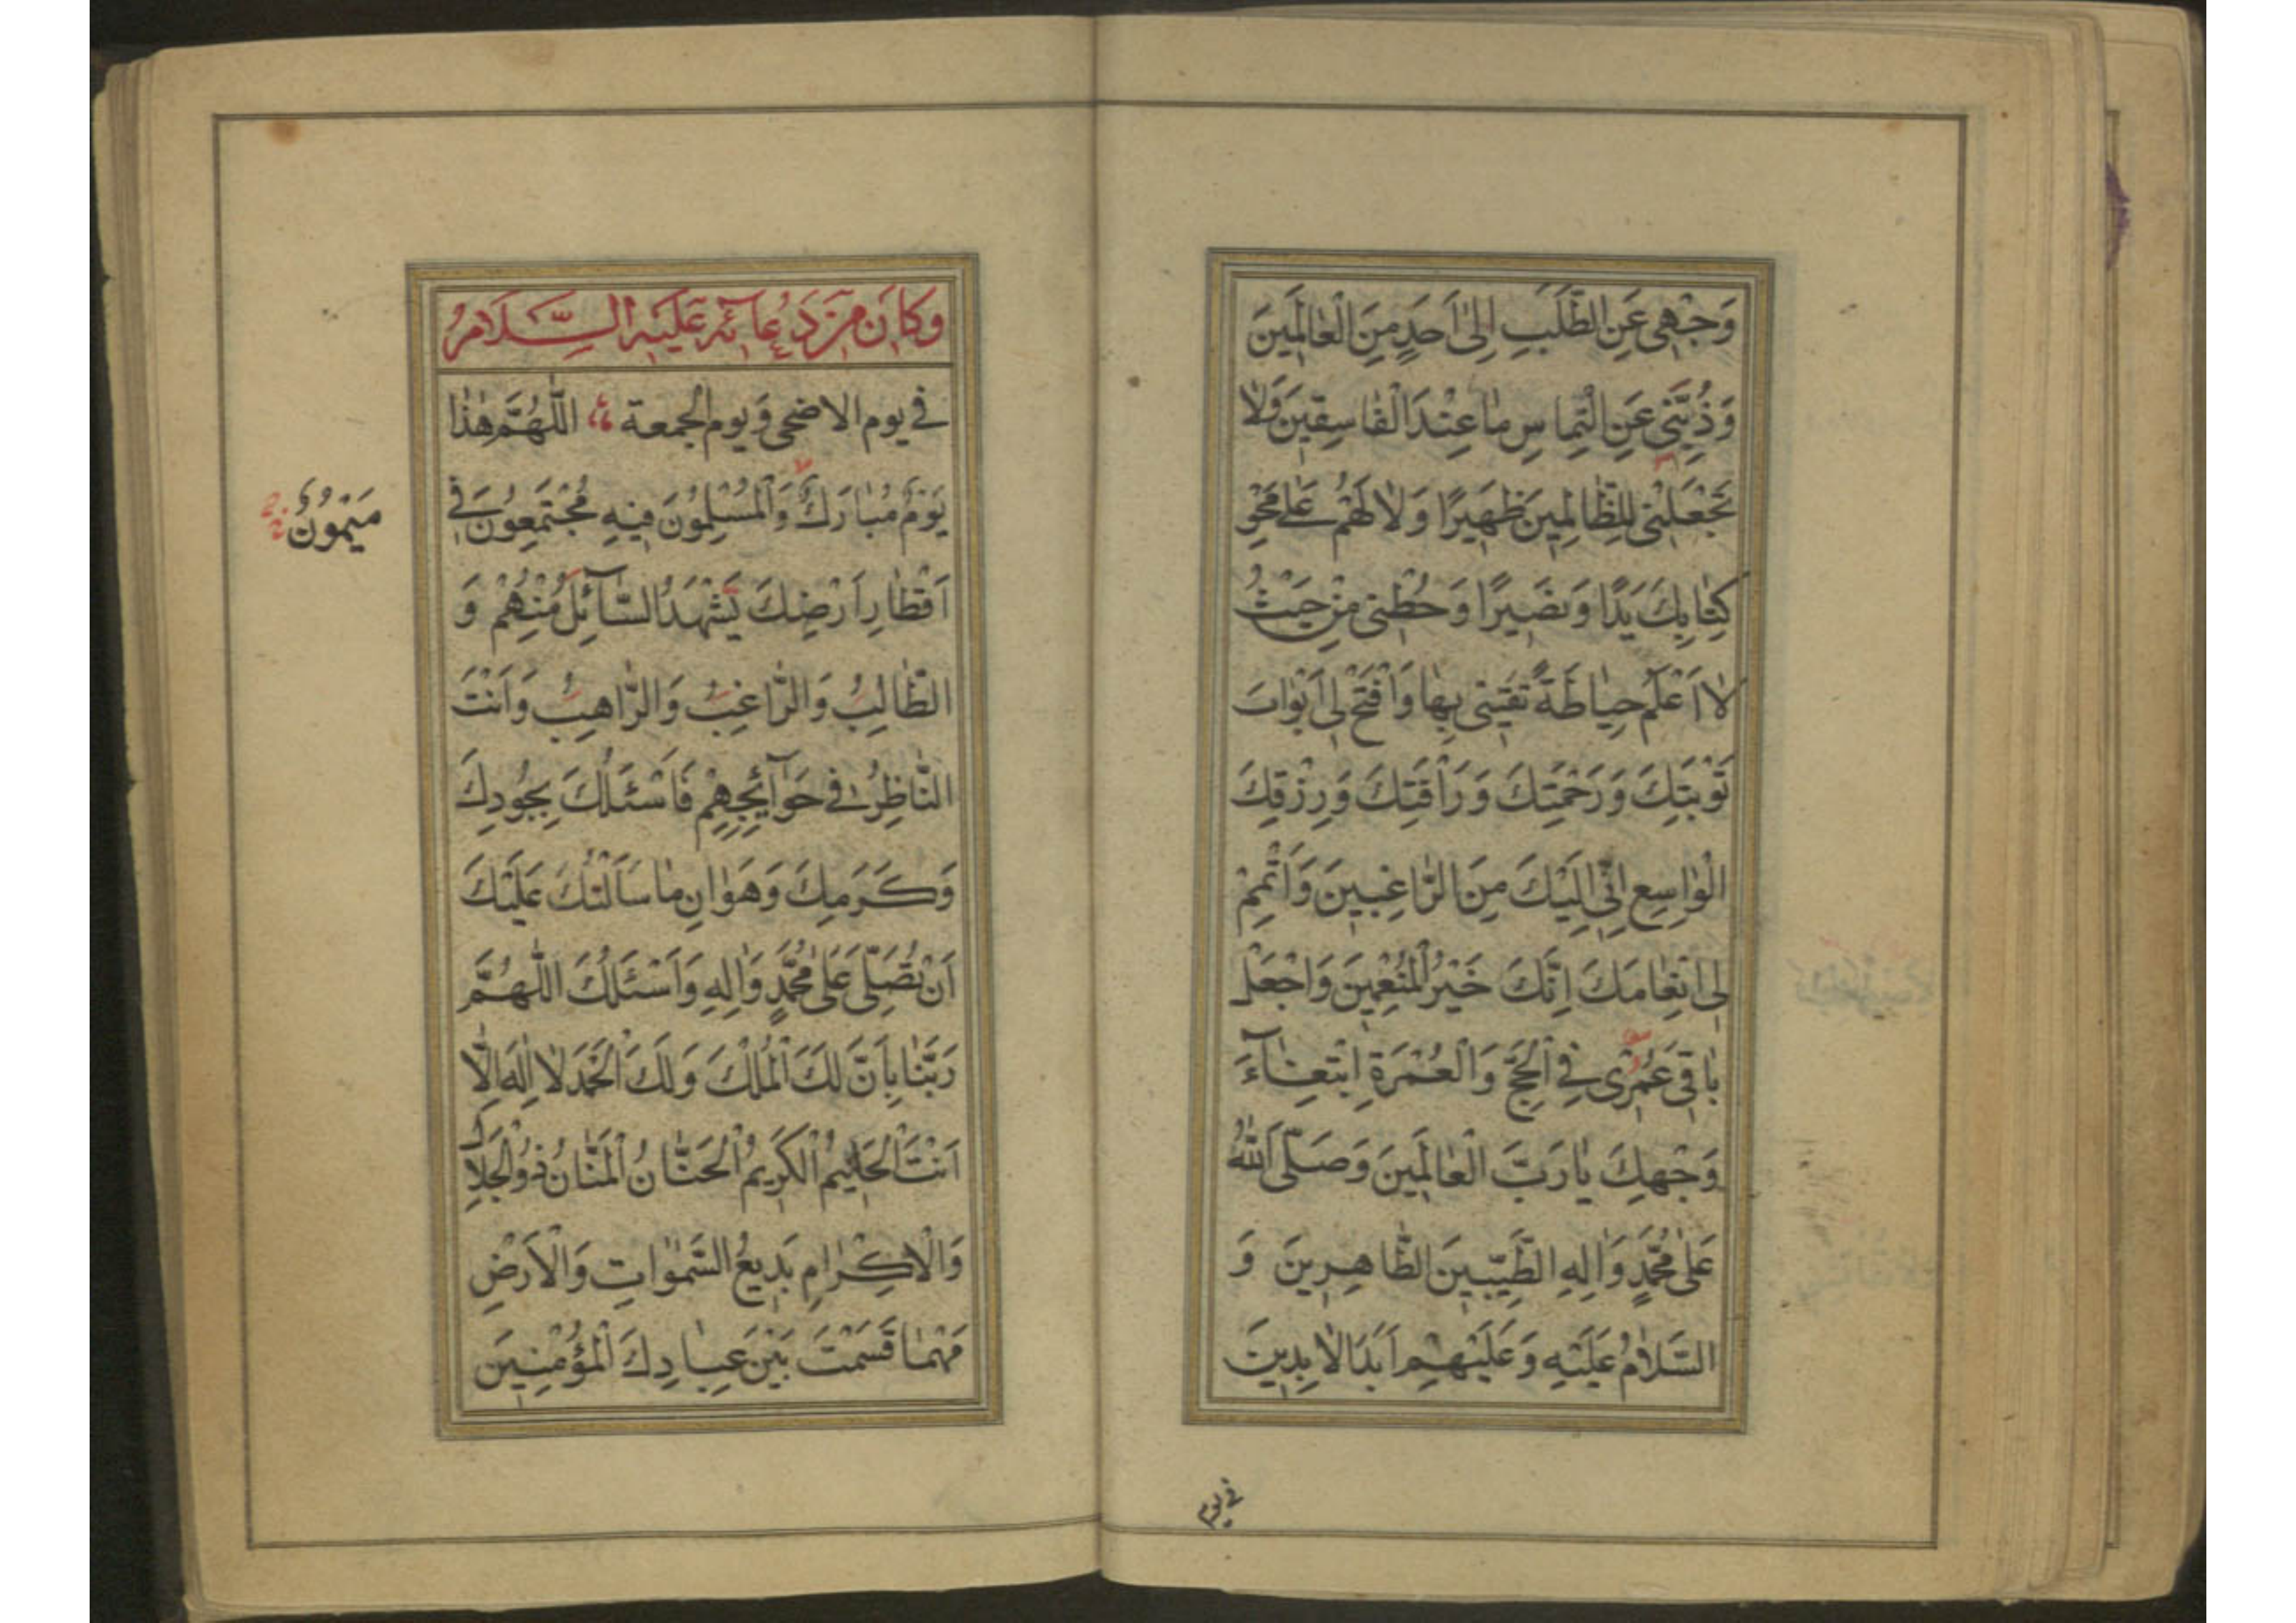 وَجْهِي عَنِ الطَّلَبِ اِلىٰ اَحَدٍ مِنَ الْعٰالَمِينَ
وَذُبَّنِي عَنِ الْتِمٰاسِ مٰا عِنْدَ الْفٰاسِقِينَ وَلاٰ
تَجْعَلْنِي لِلظّٰالِمِينَ ظَهِيرًا وَلاٰ لَهُمْ عَلىٰ مَحْوِ
كِتٰابِكَ يَدًا وَنَصِيرًا وَحُطْنِي مِنْ حَيْثُ
لاٰ اَعْلَمُ حِيٰاطَةً تَقِينِي بِهٰا وَافْتَحْ لِي اَبْوٰابَ
تَوْبَتِكَ وَرَحْمَتِكَ وَرَأْفَتِكَ وَرِزْقِكَ
الْوٰاسِعِ اِنِّي اِلَيْكَ مِنَ الرّٰاغِبِينَ وَاَتْمِمْ
لِي اِنْعٰامَكَ اِنَّكَ خَيْرُ الْمُنْعِمِينَ وَاجْعَلْ
بٰاقِيَ عُمْرِي فِي الْحَجِّ وَالْعُمْرَةِ ابْتِغٰآءَ
وَجْهِكَ يٰا رَبَّ الْعٰالَمِينَ وَصَلَّى اللّٰهُ
عَلىٰ مُحَمَّدٍ وَاٰلِهِ الطَّيِّبِينَ الطّٰاهِرِينَ وَ
السَّلاٰمُ عَلَيْهِ وَعَلَيْهِمْ اَبَدَ الاٰبِدِينَ
في يوم
وَكَانَ مِنْ دُعَآئِهِ عَلَيْهِ السَّلَامُ
في يوم الاضحى وَيوم الجمعة اَللّٰهُمَّ هٰذٰا
يَوْمٌ مُبٰارَكٌ وَالْمُسْلِمُونَ فِيهِ مُجْتَمِعُونَ فِي
اَقْطٰارِ اَرْضِكَ يَشْهَدُ السّٰآئِلُ مِنْهُمْ وَ
الطّٰالِبُ وَالرّٰاغِبُ وَالرّٰاهِبُ وَاَنْتَ
النّٰاظِرُ فِي حَوٰآئِجِهِمْ فَاَسْئَلُكَ بِجُودِكَ
وَكَرَمِكَ وَهَوٰانِ مٰا سَاَلْتُكَ عَلَيْكَ
اَنْ تُصَلِّيَ عَلىٰ مُحَمَّدٍ وَاٰلِهِ وَاَسْئَلُكَ اللّٰهُمَّ
رَبَّنٰا بِاَنَّ لَكَ الْمُلْكَ وَلَكَ الْحَمْدَ لاٰ اِلٰهَ اِلاّٰ
اَنْتَ الْحَلِيمُ الْكَرِيمُ الْحَنّٰانُ الْمَنّٰانُ ذُو الْجَلاٰلِ
وَالْاِكْرٰامِ بَدِيعُ السَّمٰوٰاتِ وَالْاَرْضِ
مَهْمٰا قَسَمْتَ بَيْنَ عِبٰادِكَ الْمُؤْمِنِينَ
مَيْمُونٌ